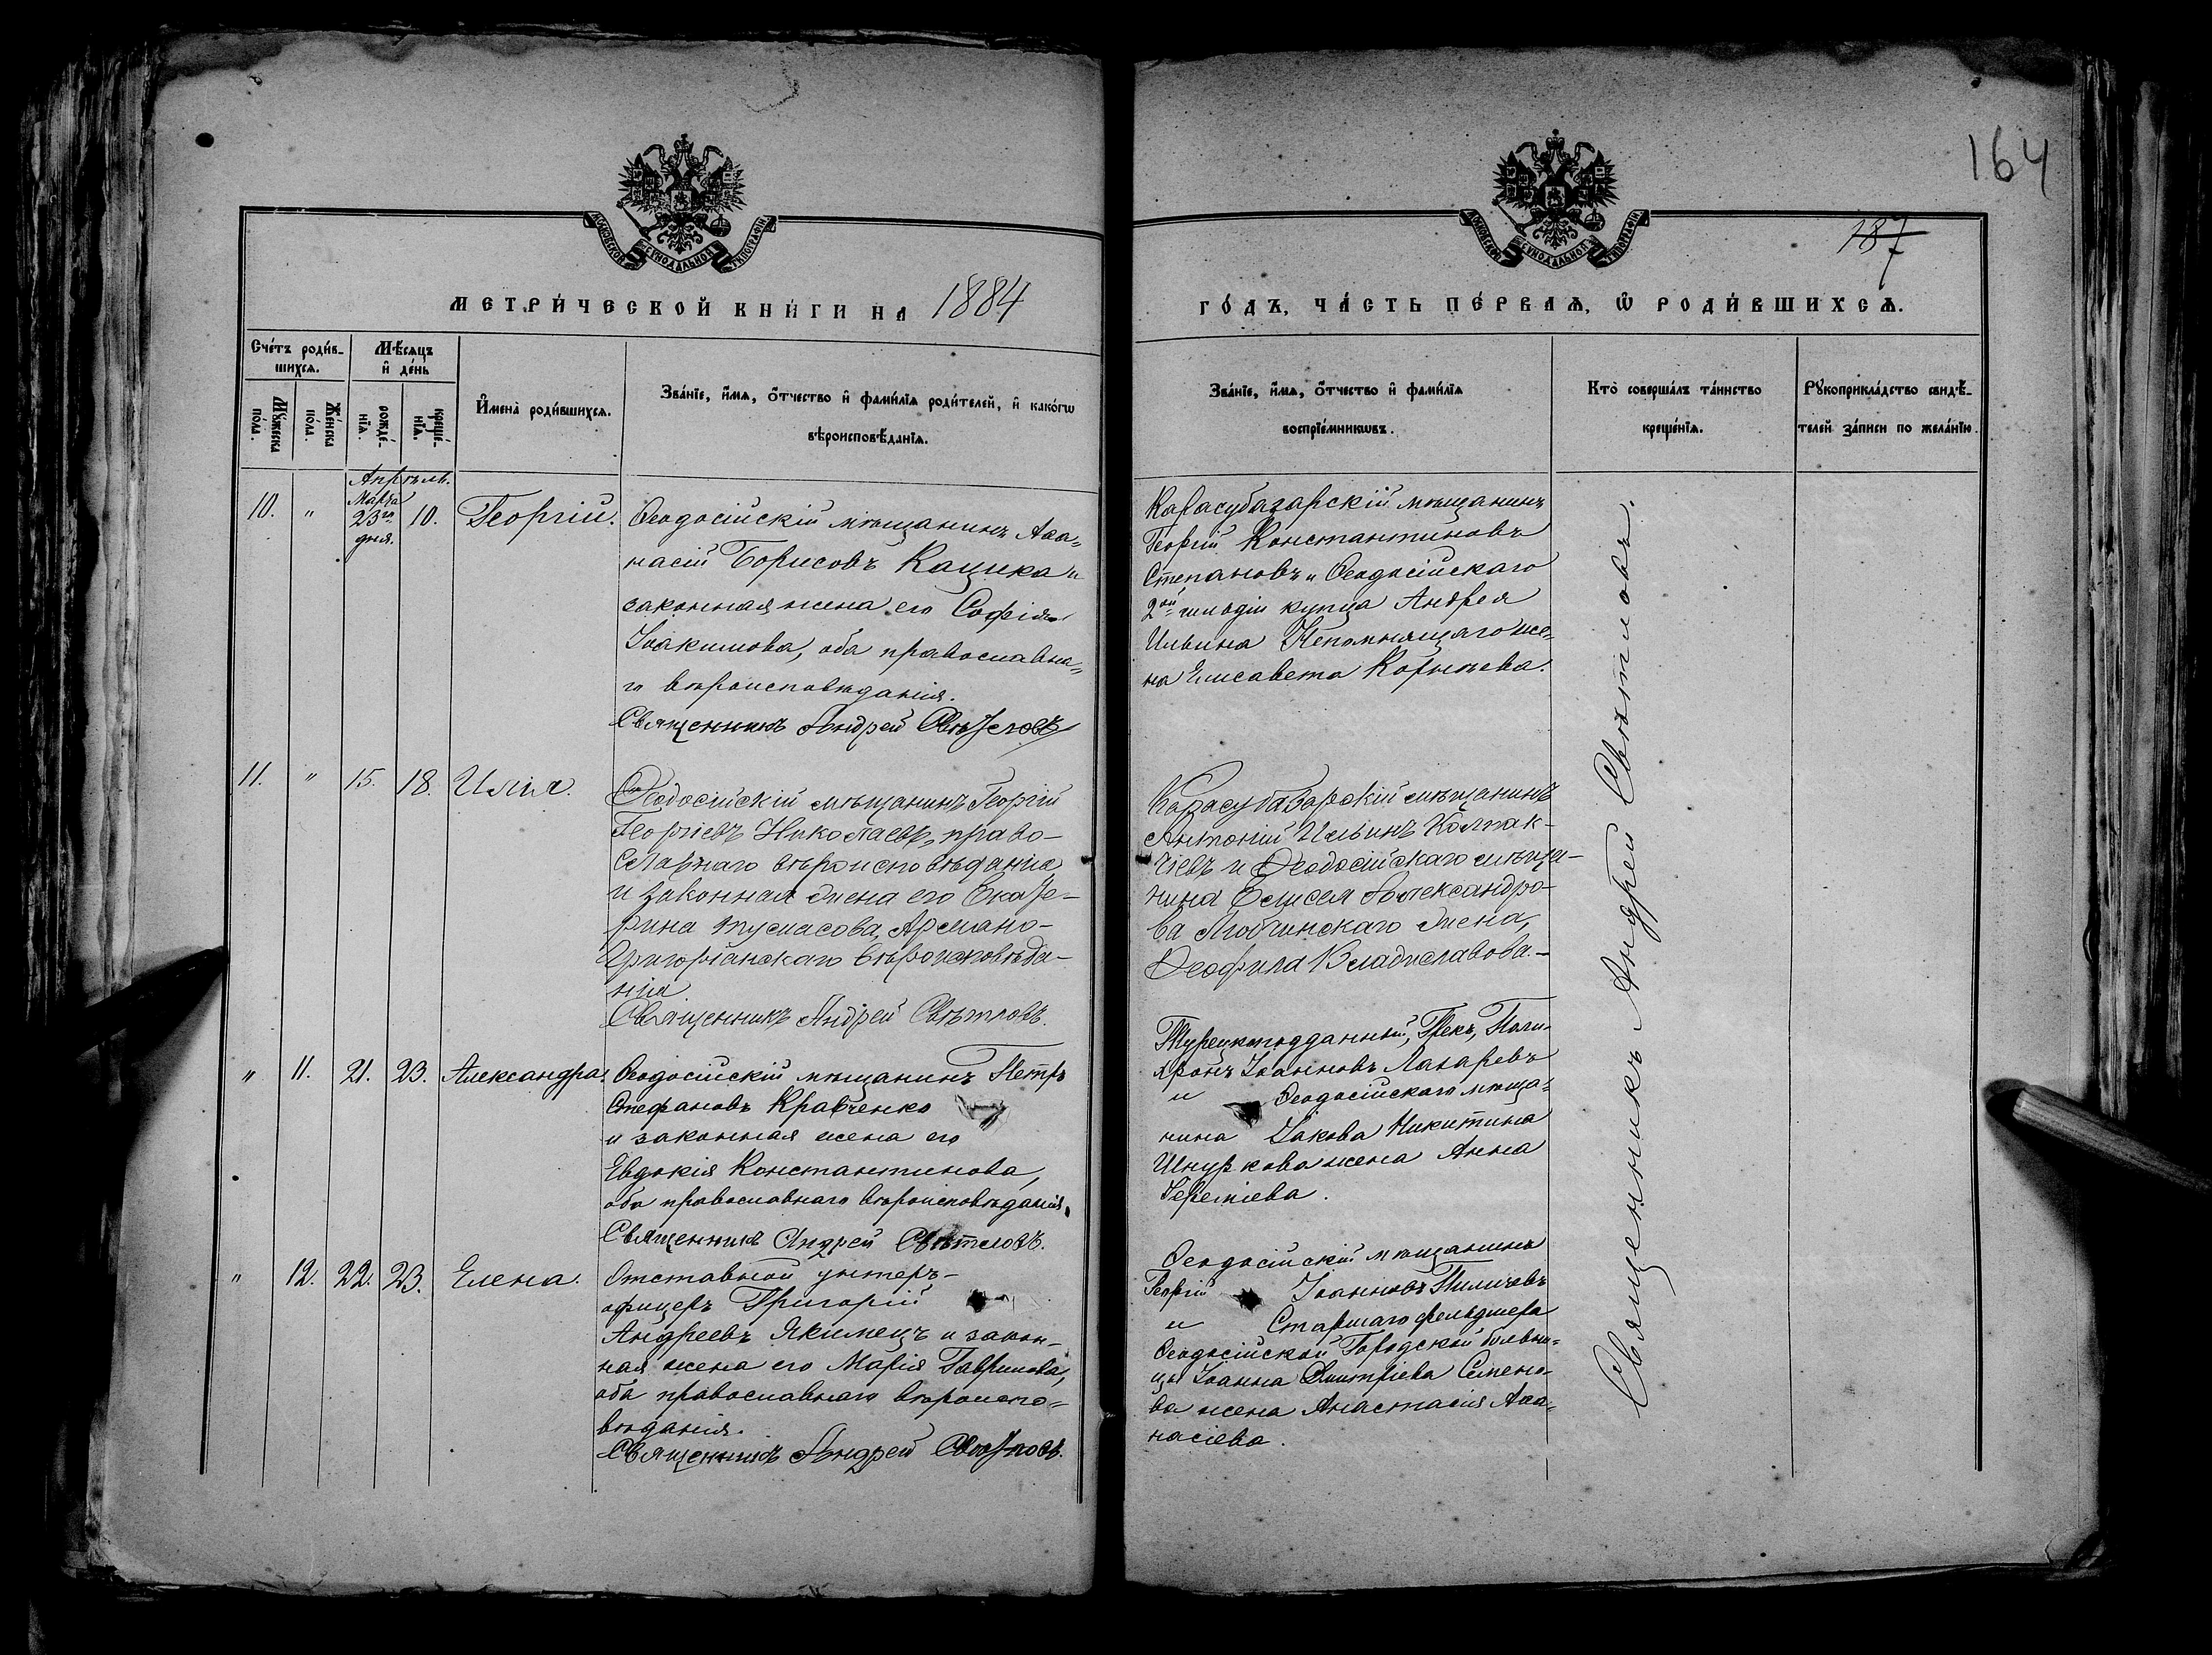 164
187
МОСКОВСКОЙ СѴНОДАЛЬНОЙ ТИПОГРАФІИ
МОСКОВСКОЙ СѴНОДАЛЬНОЙ ТИПОГРАФІИ
МЕТРИ́ЧЕСКОЙ КНИ́ГИ НА 1884
ГО́ДЪ, ЧА́СТЬ ПЕ́РВАѦ, Ѿ РОДИ́ВШИХСѦ.
Сче́тъ роди́в-
шихсѧ.
Мѣ́сѧцъ
и҆ де́нь
Мꙋ́жеска по́ла.
Же́нска по́ла.
рожде́-
нїѧ.
креще́-
нїѧ.
И҆мена̀ роди́вшихсѧ.
Зва́нїе, и҆́мѧ, ѻ҆́тчество и҆ фами́лїѧ роди́телей, и҆ како́гѡ
вѣроисповѣ́данїѧ.
Зва́нїе, и҆́мѧ, ѻ҆́тчество и҆ фами́лїѧ
воспрїе́мникѡвъ.
Кто̀ соверша́лъ та́инство
креще́нїѧ.
Рꙋкоприкла́дство свидѣ́-
телей за́писи по жела́нїю.
Апрѣль.
10. " Марта 23го дня. 10. Георгій.
Ѳеодосійскій мѣщанинъ Аѳа=
насій Борисовъ Кацика и
законная жена его Софія
Іоакимова, оба православна=
го вѣроисповѣданія.
Священникъ Андрей Свѣтловъ
Карасубазарскій мѣщанинъ
Георгій Константиновъ
Степановъ и Ѳеодосійскаго
2ой гильдіи купца Андрея
Ильина Непомнящаго же=
на Елисавета
11. " 15. 18. Илія.
Ѳеодосійскій мѣщанинъ Георгій
Георгіевъ Николаевъ, право-
славнаго вѣроисповѣданія
и законная жена его Екате-
рина Тумасова, Армяно-
Григоріанскаго вѣроисповѣда-
нія.
Священникъ Андрей Свѣтловъ.
Карасубазарскій мѣщанинъ
Антоній Ильинъ Колпак-
чіевъ и Ѳеодосійскаго мѣща-
нина Елисея Александро-
ва Любчинскаго жена,
Ѳеофила Владиславова.-
" 11. 21. 23. Александра.
Ѳеодосійскій мѣщанинъ Петръ
Стефановъ Кравченко
и законная жена его
Евдокія Константинова,
оба православнаго вѣроисповѣданія.
Священникъ Андрей Свѣтловъ.
Турецкоподданный, Грекъ, Поли-
хронъ Іоанновъ Лазаревъ
и Ѳеодосійскаго мѣща=
нина Іакова Никитина
Шнуркова жена Анна
" 12. 22. 23. Елена.
Отставной унтеръ-
офицеръ Григорій
Андреевъ Якимецъ и закон-
ная жена его Марія Гаврилова,
оба православнаго вѣроиспо=
вѣданія.
Священникъ Андрей Свѣтловъ.
Ѳеодосійскій мѣщанинъ
Георгій Іоанновъ
и Старшаго фельдшера
Ѳеодосійской Городской больни=
цы Іоанна Димитріева Семено-
ва жена Анастасія Аѳа=
насіева.
Священникъ Андрей Свѣтловъ.